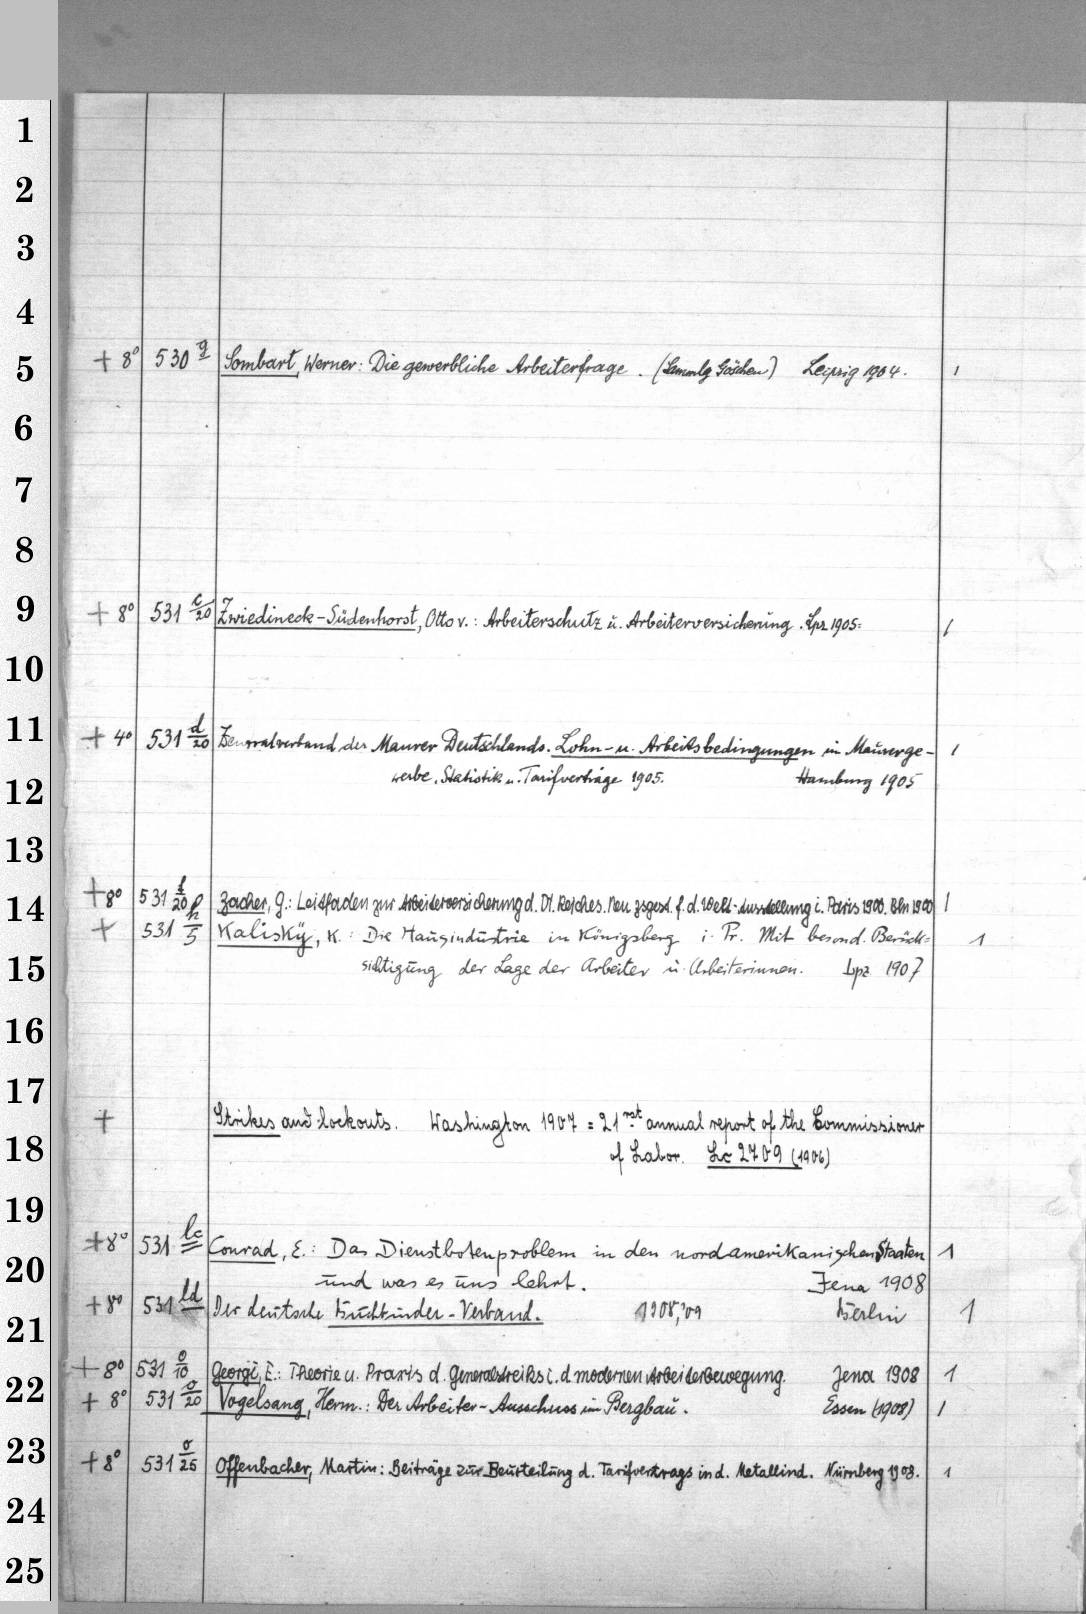 1
2
3
4
5
+ 8° 530 g Sombart, Werner: Die gewerbliche Arbeiterfrage. (Sammlg Göschen) Leipzig 1904. 1
6
7
8
9
+ 8° 531 c/20 Zwiedineck-Südenhorst, Otto v.: Arbeiterschutz u. Arbeiterversicherung. Lpz 1905. 1
10
11
+ 4° 531 d/20 Zentralverband der Maurer Deutschlands. Lohn- u. Arbeitsbedingungen in Maurerge- 1
12
werbe. Statistik u. Tarifverträge 1905. Hamburg 1905
13
14
+ 8° 531 f/20 Zacher, G.: Leitfaden zur Arbeiterversicherung d. Dt. Reiches. Neu zsgest. f. d. Welt-Ausstellung i. Paris 1900. Bln 1900 1
+ 531 h/5 Kalisky, K.: Die Hausindustrie in Königsberg i. Pr. Mit besond. Berück= 1
15
sichtigung der Lage der Arbeiter u. Arbeiterinnen. Lpz 1907
16
17
+ Strikes and lockouts. Washington 1907 = 21rst annual report of the Commissioner
18
of Labor. Lc 2709 (1906)
19
+ 8° 531 lc Conrad, E.: Das Dienstbotenproblem in den nordamerikanischen Staaten 1
20
und was es uns lehrt. Jena 1908
+ 8° 531 ld Der deutsche Buchbinder-Verband. 1908, '09 Berlin 1
21
+ 8° 531 o/10 Georgi, E.: Theorie u. Praxis d. Generalstreiks i. d. modernen Arbeiterbewegung. Jena 1908 1
22
+ 8° 531 o/20 Vogelsang, Herm.: Der Arbeiter-Ausschuss im Bergbau. Essen (1908) 1
23
+ 8° 531 o/25 Offenbacher, Martin: Beiträge zur Beurteilung d. Tarifvertrags in d. Metallind. Nürnberg 1908. 1
24
25